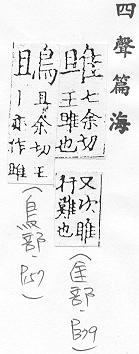 四聲篇海
雎 七余切
王雎也
又次雎
行難也
(隹部
鴡 且余切王
丨亦作雎
(鳥部, P57)